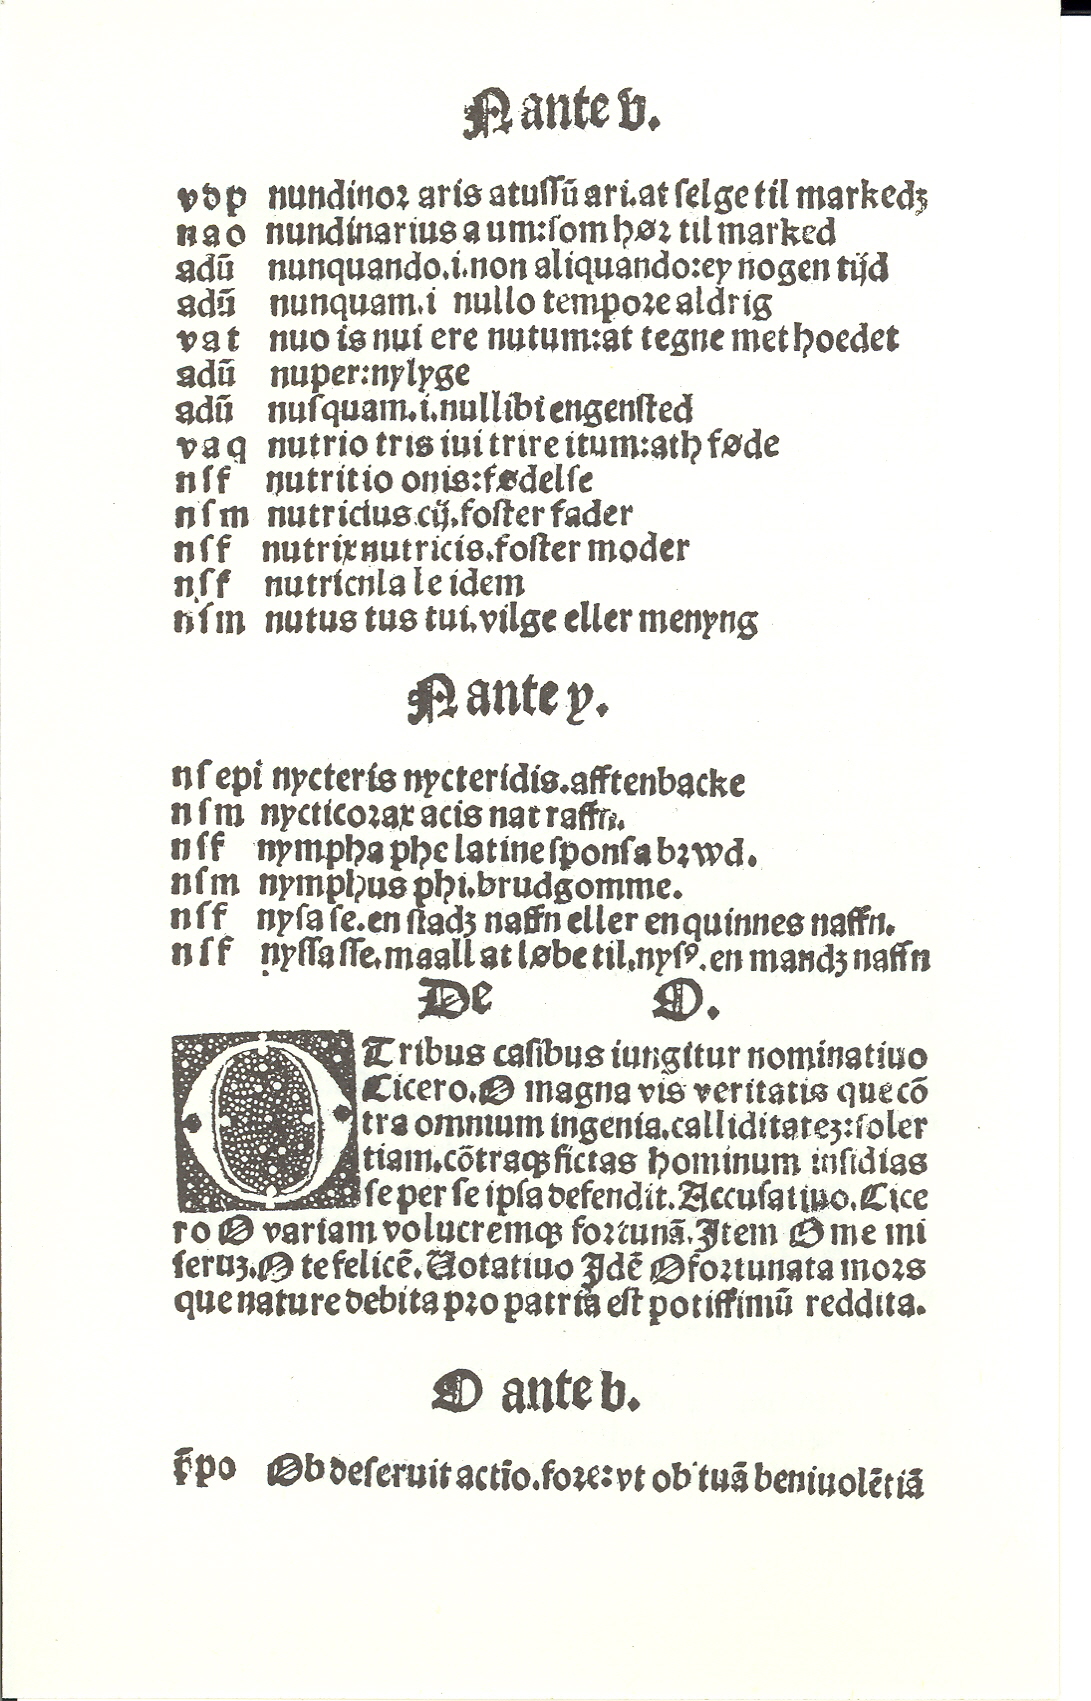 N ante v.
vdp nundinoꝛ aris atuſſū ari.at ſelge til markedꝫ
nao nundinarius a um:ſom høꝛ til marked
adū nunquando.i.non aliquando:ey nogen tijd
adū nunquam.i nullo tempoꝛe aldrig
vat nuo is nui ere nutum:at tegne met hoedet
adū nuper:nylyge
adū nuſquam.i.nullibi engenſted
vaq nutrio tris iui trire itum:ath føde
nſf nutritio onis:fødelſe
nſm nutricius.cij.foſter fader
nſf nutrix nutricis.foſter moder
nſf nutricnla le idem
nſm nutus tus tui.vilge eller menyng
N ante y.
nſ epi nycteris nycteridis.afftenbacke
nſm nycticoꝛax acis nat raffn.
nſf nympha phe latine ſponſa bꝛwd.
nſm nymphus phi.brudgomme.
nſf nyſa ſe.en ſtadꝫ naffn eller en quinnes naffn.
nſf nyſſa ſſe.maall at løbe til.nyſꝰ.en mandꝫ naffn
De O.
O Tribus caſibus iungitur nominatiuo
Cicero.O magna vis veritatis que cō
tra omnium ingenia.calliditateꝫ:ſoler
tiam.cōtraqꝫ fictas hominum inſidias
ſe per ſe ipſa defendit.Accuſatiuo.Cice
ro O variam volucremqꝫ foꝛtunā.Item O me mi
ſeruꝫ.O te felicē.Uotatiuo Idē O foꝛtunata moꝛs
que nature debita pꝛo patria eſt potiſſimū reddita.
O ante b.
p̄po Ob deſeruit actio.foꝛe:vt ob tuā beniuolētiā